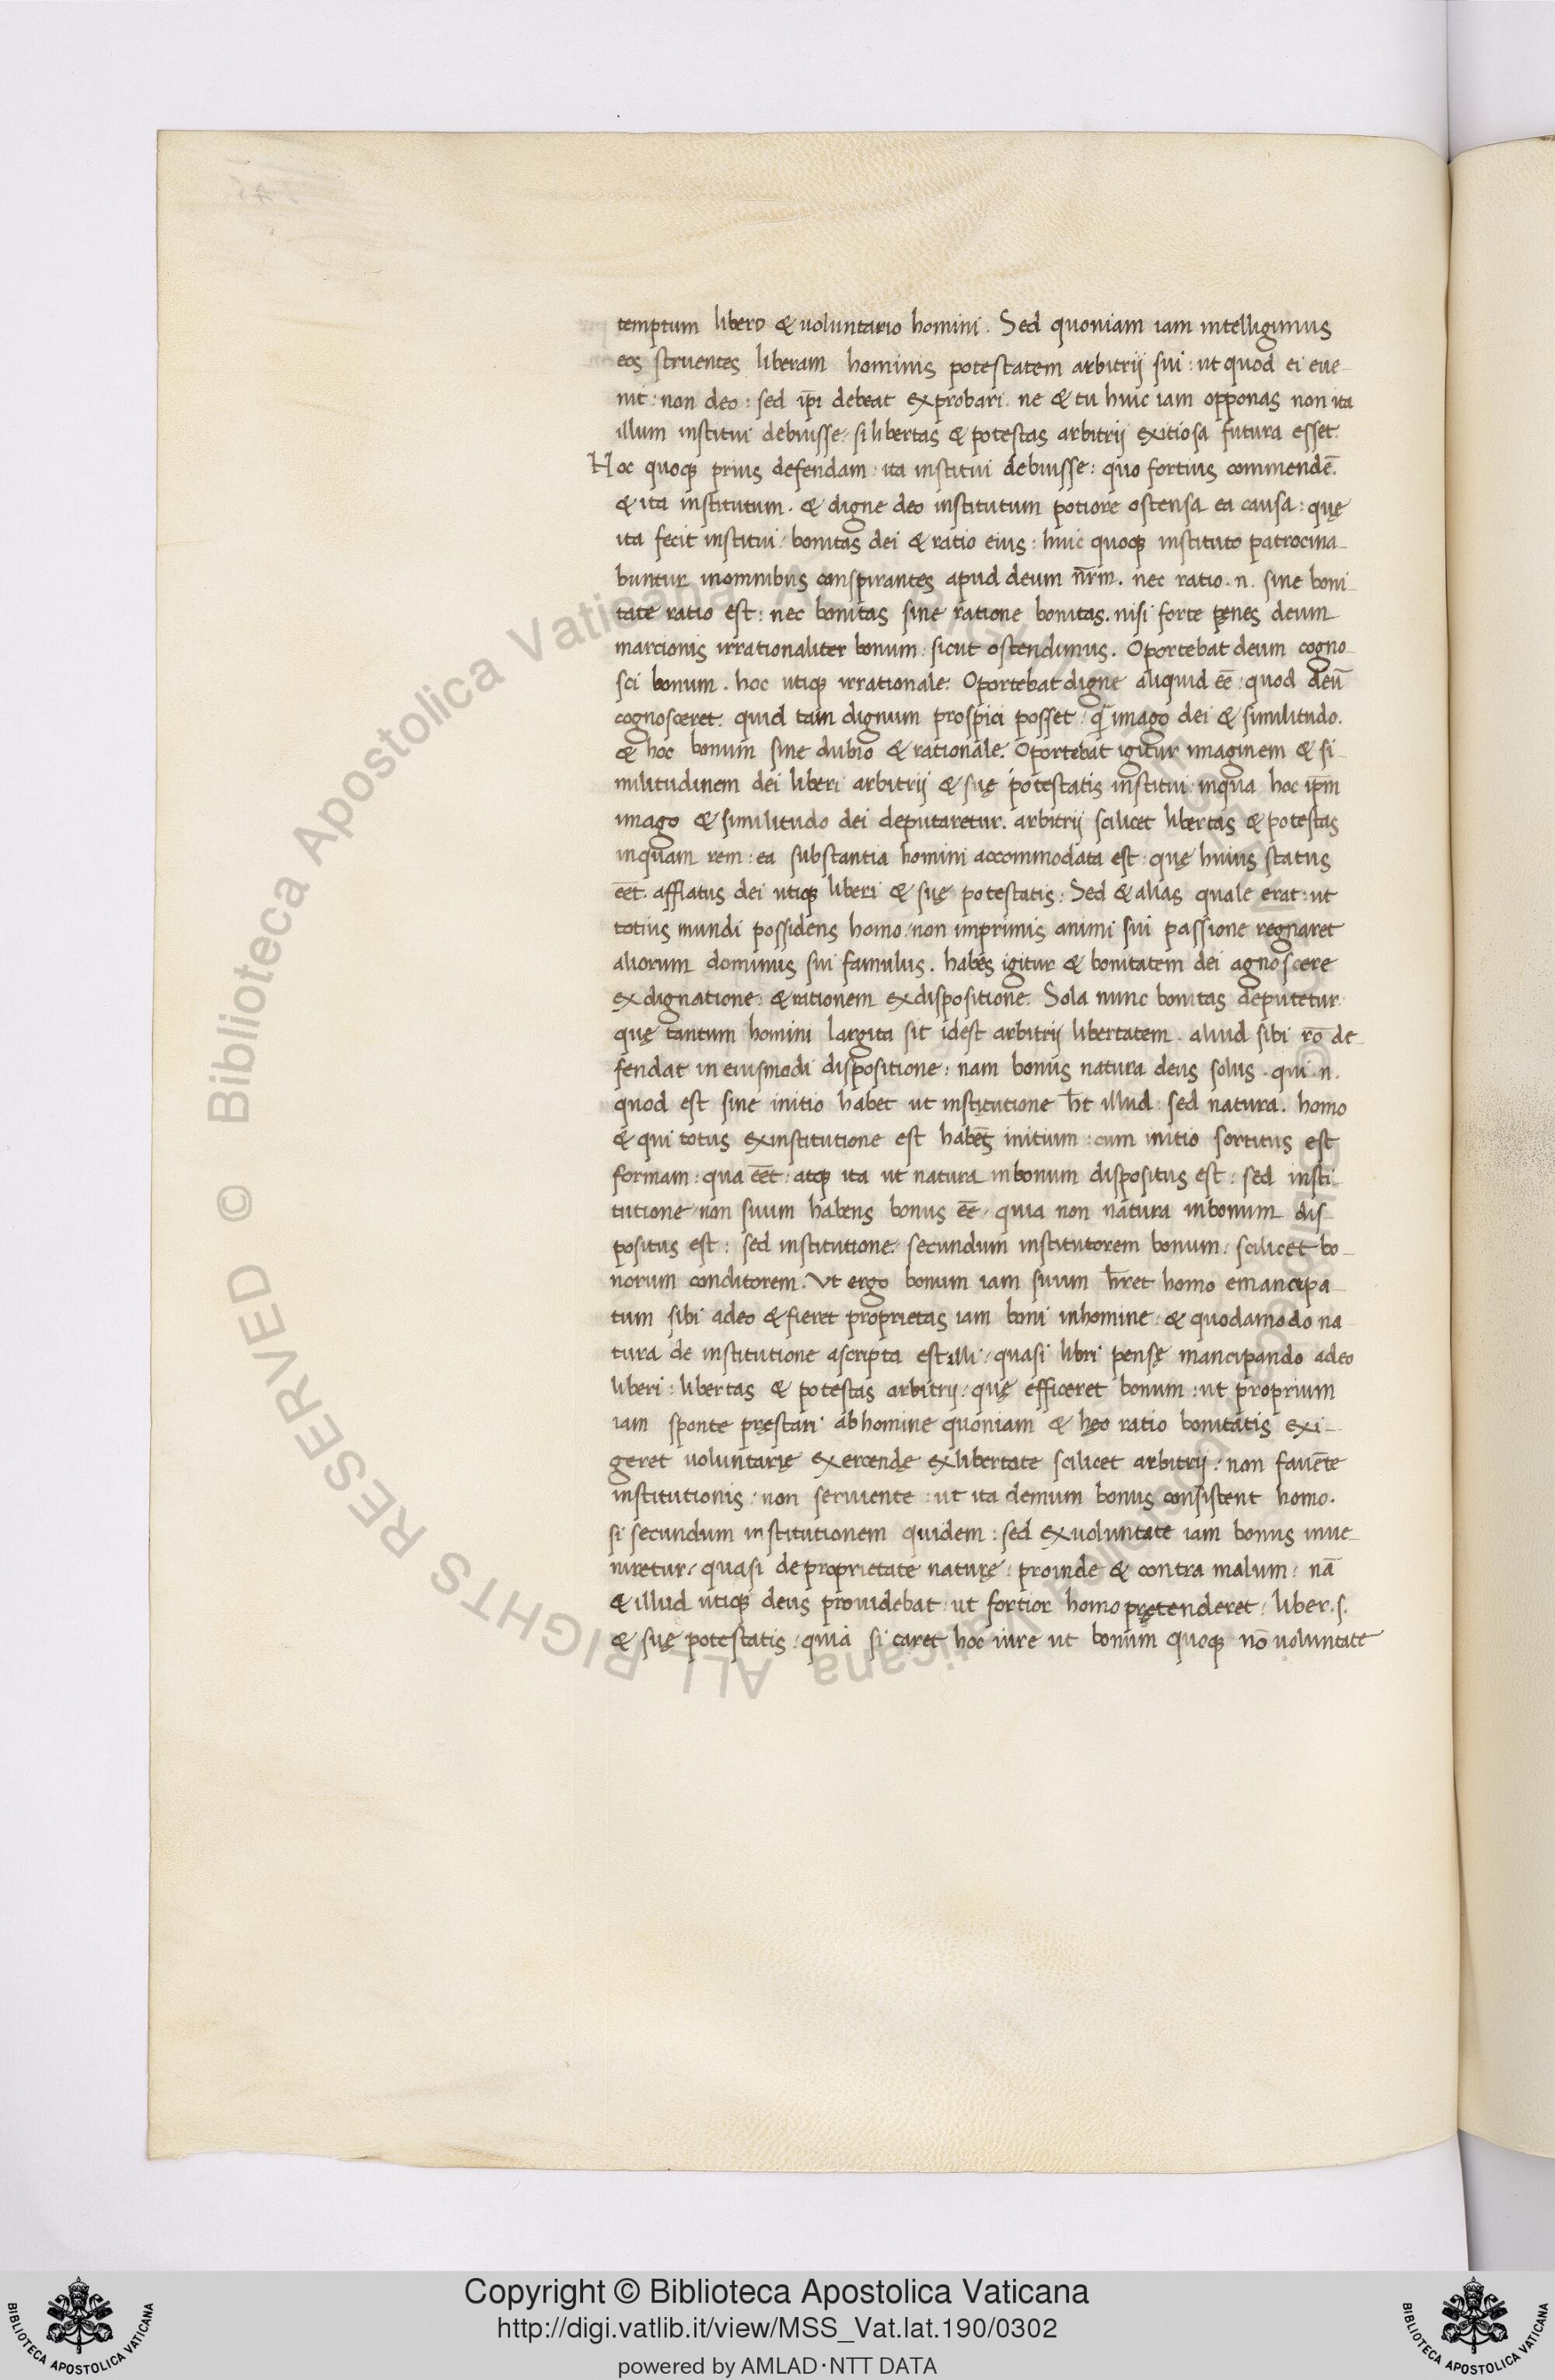 temptum libero & uoluntario homini. Sed quoniam iam intelligimus
eos struentes liberam hominis potestatem arbitrij sui: ut quod ei eue-
nit: non deo: sed ip̄i debeat exprobari. ne & tu huic iam opponas non ita
illum institui debuisse: si libertas & potestas arbitrij exitiosa futura esset.
Hoc quoq̢ prius defendam: ita institui debuisse: quo fortius commendē.
& ita institutum. & digne deo institutum potiore ostensa ea causa: quę
ita fecit institui: bonitas dei & ratio eius: huic quoq̢ instituto patrocina-
buntur inomnibus conspirantes apud deum nr̄m. nec ratio .n. sine boni-
tate ratio est: nec bonitas sine ratione bonitas. nisi forte ꝑenes deum
marcionis irrationaliter bonum: sicut ostendimus. Oportebat deum cogno-
sci bonum. hoc utiq̢ irrationale. Oportebat digne aliquid eē: quod deū
cognosceret. quid tam dignum prospici posset: q̄ imago dei & similitudo.
& hoc bonum sine dubio & rationale. Oportebat igitur imaginem & si-
militudinem dei liberi arbitrij & suę potestatis institui: inqua hoc ip̄m
imago & similitudo dei deputaretur. arbitrij scilicet libertas & potestas
inquam rem: ea substantia homini accommodata est: quę huius status
eēt. afflatus dei utiq̢ liberi & suę potestatis: Sed & alias quale erat: ut
totius mundi possidens homo: non imprimis animi sui passione regnaret
aliorum dominus sui famulus. habes igitur & bonitatem dei agnoscere
exdignatione: & rationem exdispositione. Sola nunc bonitas deputetur.
quę tantum homini largita sit idest arbitrij libertatem. aliud sibi rō de-
fendat in eiusmodi dispositione: nam bonus natura deus solus. qui .n.
quod est sine initio habet ut institutione h̄t illud: sed natura. homo
& qui totus exinstitutione est habēs initium: cum initio sortitus est
formam: qua eēt: atq̢ ita ut natura inbonum dispositus est: sed insti-
tutione: non suum habens bonus eē: quia non natura inbonum dis
positus est: sed institutione: secundum institutorem bonum: scilicet bo-
norum conditorem. Vt ergo bonum iam suum h̄ret homo emancipa-
tum sibi adeo & fieret proprietas iam boni inhomine: & quodamodo na
tura de institutione ascripta est illi: quasi libri pensę mancipando adeo
liberi: libertas & potestas arbitrij: quę efficeret bonum: ut proprium
iam sponte pręstari abhomine quoniam & hęo ratio bonitatis exi-
geret uoluntarię exercendę exlibertate scilicet arbitrij: non fauēte
institutionis: non seruiente: ut ita demum bonus consistent homo.
si secundum institutionem quidem: sed exuoluntate iam bonus inue-
niretur: quasi deproprietate naturę: proinde & contra malum: nā
& illud utiq̢ deus prouidebat: ut fortior homo prętenderet: liber .s.
& suę potestatis: quia si caret hoc iure ut bonum quoq̢ nō uoluntate
Copyright © Biblioteca Apostolica Vaticana
http://digi.vatlib.it/view/MSS_Vat.lat.190/0302
powered by AMLAD·NTT DATA
BIBLIOTECA APOSTOLICA VATICANA
BIBLIOTECA APOSTOLICA VATICANA
© Biblioteca Apostolica Vaticana ALL RIGHTS RESERVED